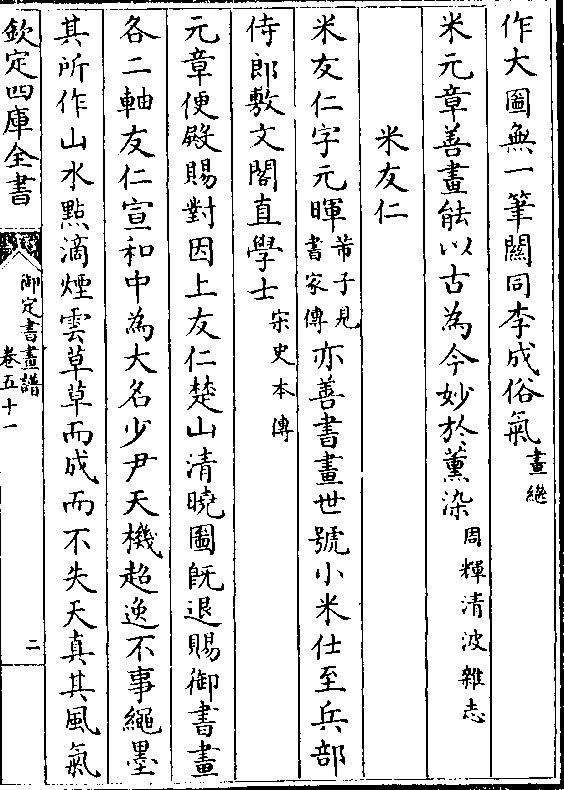 作大圖無一筆關同李成俗氣畫繼
米元章善畫能以古為今妙於薰染周煇清波雜志
米友仁
米友仁字元暉芾子見書家傳亦善書畫世號小米仕至兵部
侍郎敷文閣直學士宋史本傳
元章便殿賜對因上友仁楚山清曉圖既退賜御書畫
各二軸友仁宣和中為大名少尹天機超逸不事繩墨
其所作山水點滴煙雲草草而成而不失天真其風氣
欽定四庫全書
御定書畫譜
卷五十一
二